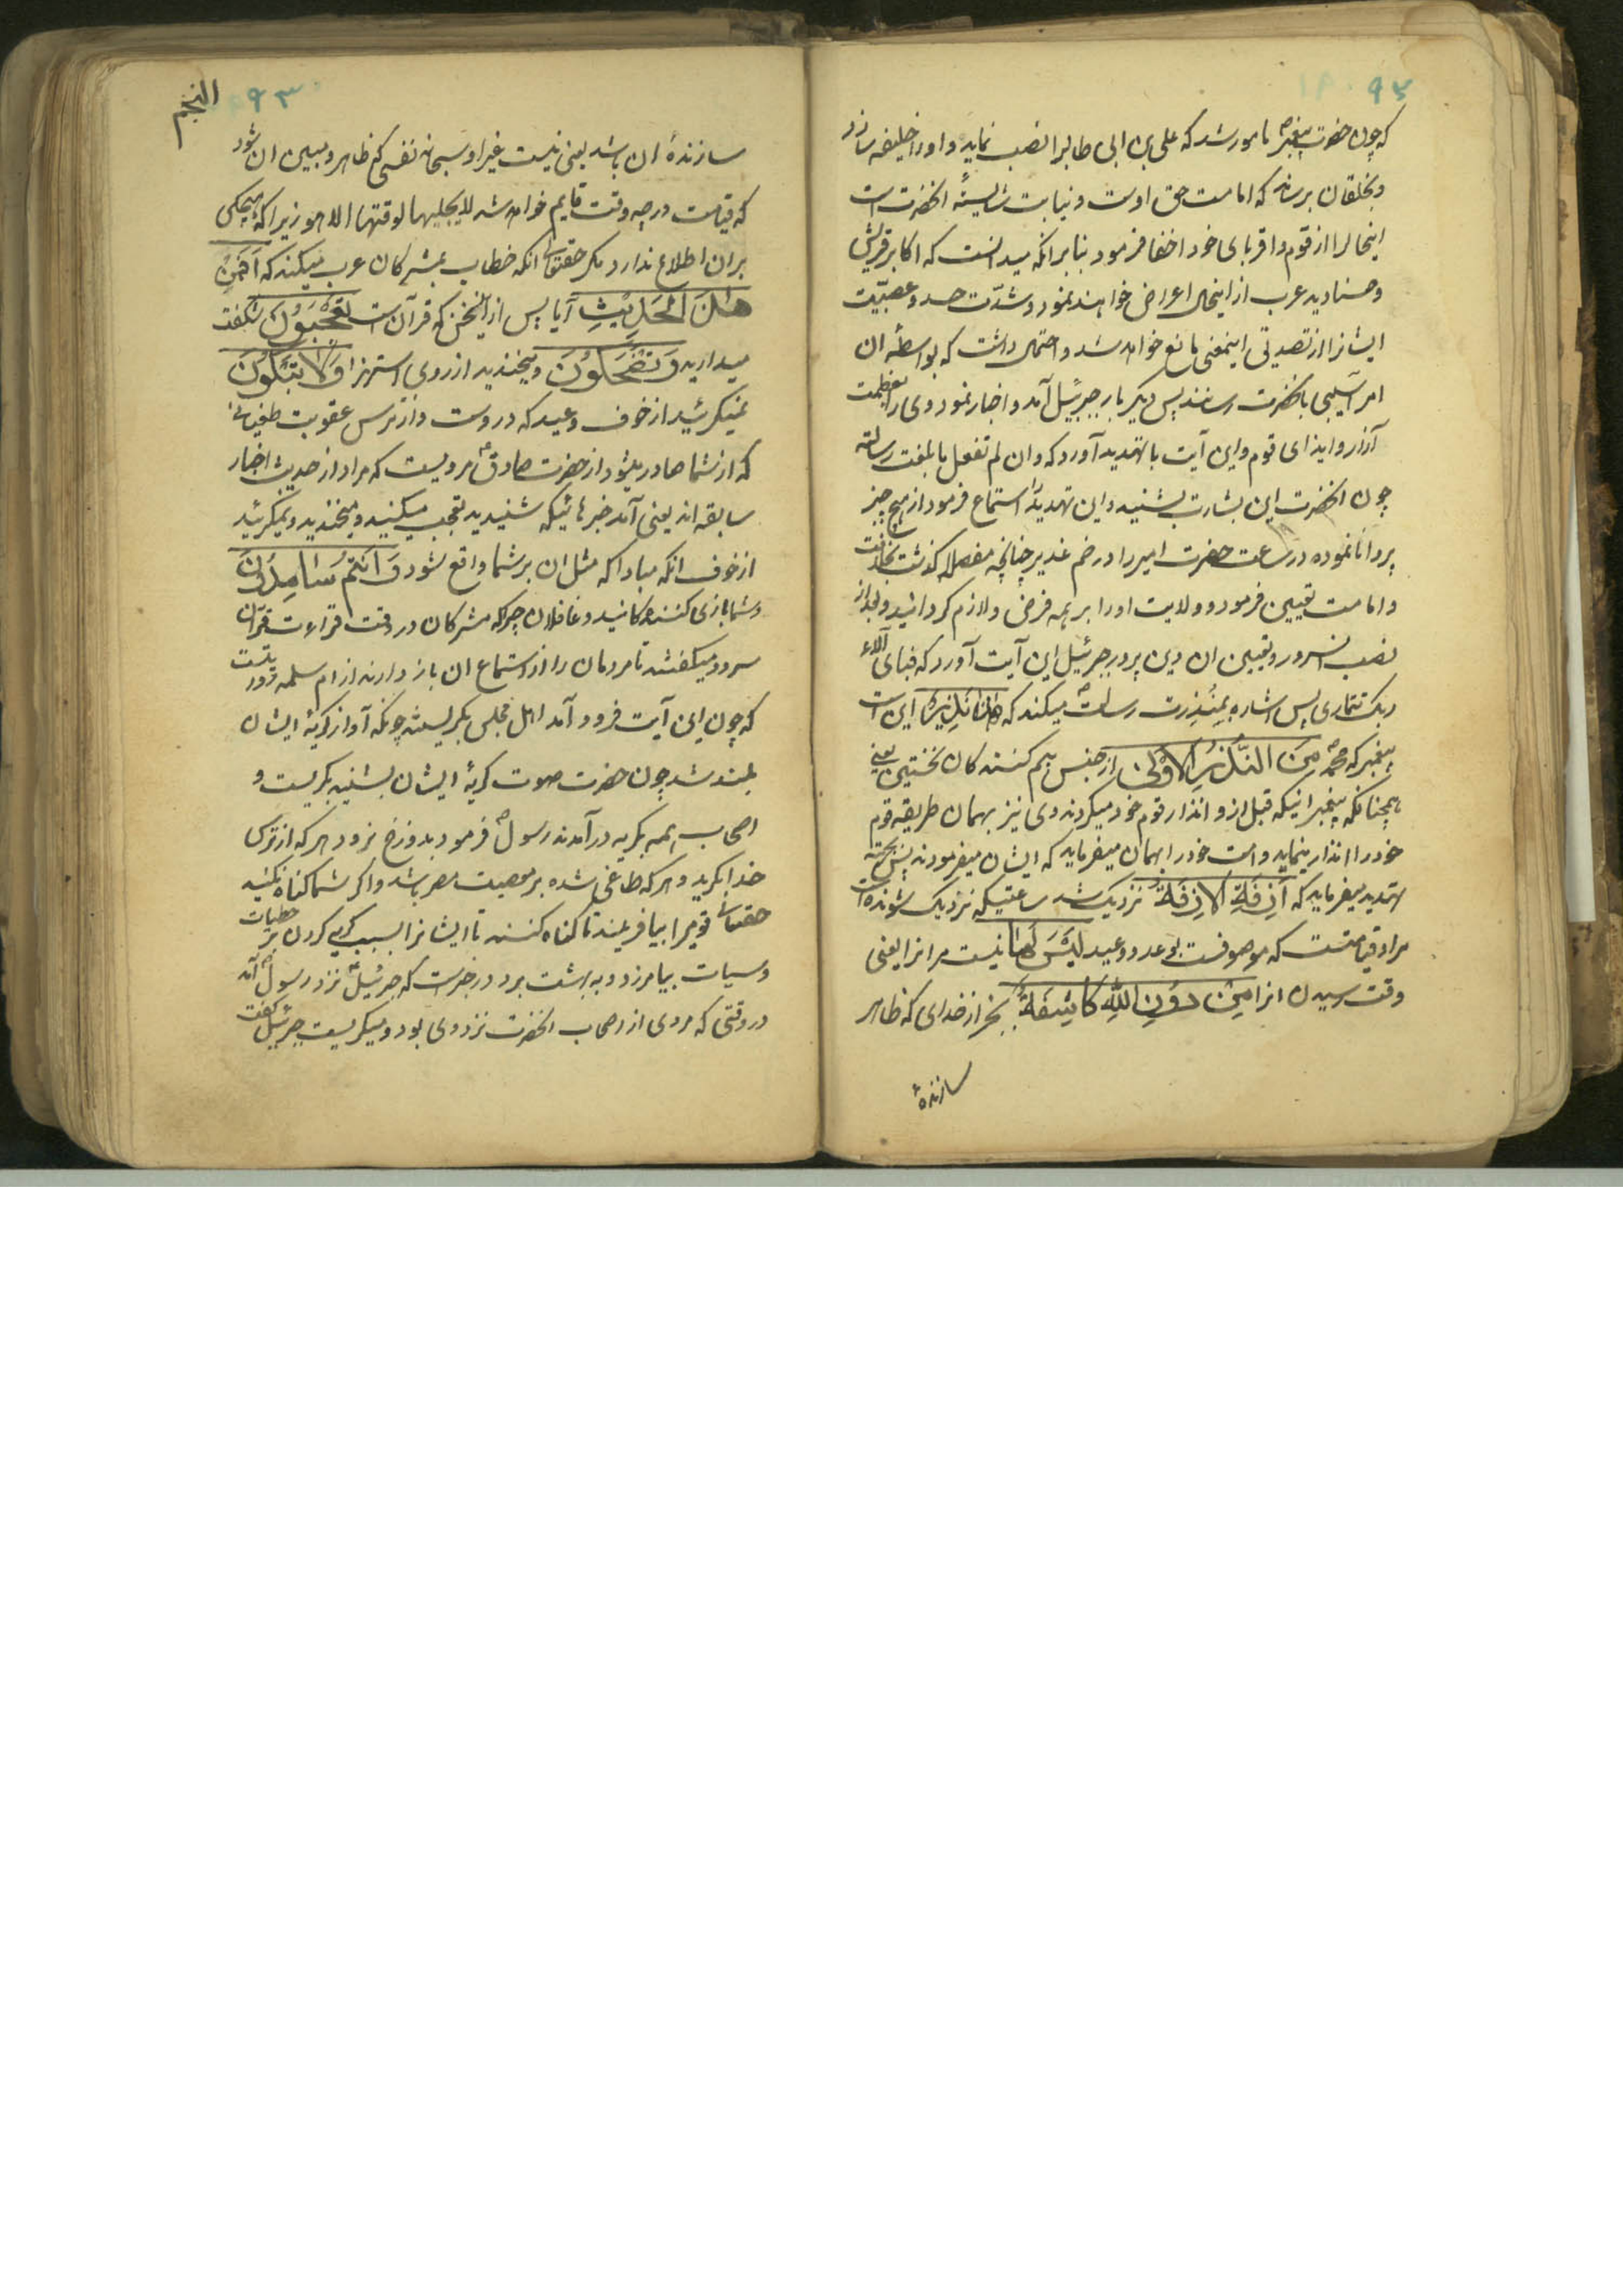 ۹۲
که چون حضرت پیغمبر مامور شد که علی بن ابی طالبرا نصب نماید و اورا خلیفه سازد
و بخلقان برساند که امامت حق اوست و نیابت شایستهٔ انحضرت است
اینحالرا از قوم و اقربای خود اخفا فرمود بنابر انکه میدانست که اکابر قریش
و صنادید عرب از اینحال اعراض خواهند نمود و شدّت حسد و عصبیّت
ایشانرا از تصدیق اینمعنی مانع خواهد شد و احتمال داشت که بواسطهٔ ان
امر آسیبی بانحضرت رسانند پس دیکر بار جبرئیل آمد و اخبار نمود وی را بعظمت
آزار و ایذای قوم و این آیت با تهدید آورد که و ان لم تفعل فما بلغت رسالته
چون انحضرت این بشارت بشنید و این تهدید را استماع فرمود از هیچ چیز
پروا نا نموده در ساعت حضرت امیر را در خم غدیر چنانچه مفصلا کذشت بخلافت
و امامت تعیین فرمود و ولایت اورا بر همه فرض و لازم کردانید و بعد از
نصب انسرور و تعیین ان دین پرور جبرئیل این آیت آورد که فبای آلاء
ربک تتماری پس اشاره بمنذرت رسالت میکند که هٰذا نَذِیرٌ این است
پیغمبر که محمد مِنَ النُّذُرِ الاُولیٰ از جنس بیم کنندکان نخستین یعنی
همچنانکه پیغمبرانیکه قبل ازو انذار قوم خود میکردند وی نیز بهمان طریقه قوم
خود را انذار مینماید و امت خود را بهمان میفرماید که ایشان میفرمودند پس بجهته
تهدید میفرماید که اَزِفَةِ الاٰزِفَةُ نزدیک شد ساعتیکه نزدیک شونده است
مراد قیامتست که موصوفست بوعد و وعید لَیْسَ لَهٰا نیست مر انرا یعنی
وقت رسیدن انرا مِنْ دُونِ اللّٰهِ کاٰشِفَةٌ بجز از خدای که ظاهر
سازندهٔ
۹۳
النجم
سازندهٔ ان باشد یعنی نیست غیر او سبحانه نفسی که ظاهر و مبین ان شود
که قیامت در چه وقت قایم خواهد شد لا یجلیها لوقتها الا هو زیرا که هیچکس
بر ان اطلاع ندارد مکر حقتعالی انکه خطاب بمشرکان عرب میکند که اَفَمِنْ
هٰذَا الحَدِیْثِ آیا پس از این سخن که قرآن است تَعْجَبُونَ شکفت
میدارید وَ تَضْحَکُونَ و میخندید از روی استهزا وَلاٰ تَبْکُونَ
و نمیکرئید از خوف وعید که دروست و از ترس عقوبت طغیانی
که از شما صادر میشود از حضرت صادق مرویست که مراد از حدیث اخبار
سابقه اند یعنی آمد خبرهائیکه شنیدید تعجب میکنید و میخندید و نمیکرئید
از خوف انکه مبادا که مثل ان بر شما واقع شود وَ اَنْتُمْ سٰامِدُونَ
و شما بازی کنندکانید و غافلان چرکه مشرکان در وقت قراءت قران
سرود میکفتند تا مردمان را از استماع ان باز دارند از ام سلمه روایتست
که چون این آیت فرود آمد اهل مجلس بکریستند چونکه آواز کریهٔ ایشان
بلند شد چون حضرت صوت کریهٔ ایشان بشنید بکریست و
اصحاب همه بکریه درآمدند رسول فرمود بدوزخ نرود هر که از ترس
خدا بکرید و هر که طاغی شده بر معصیت مصر باشد و اکر شما کناه نکنید
حقتعالی قومیرا بیافریند تا کناه کنند تا ایشانرا بسبب کریه کردن بر خطیات
و سیات بیامرزد و به بهشت برد در خبرست که جبرئیل نزد رسول آمد
در وقتی که مردی از اصحاب انحضرت نزد وی بود و میکریست جبرئیل کفت